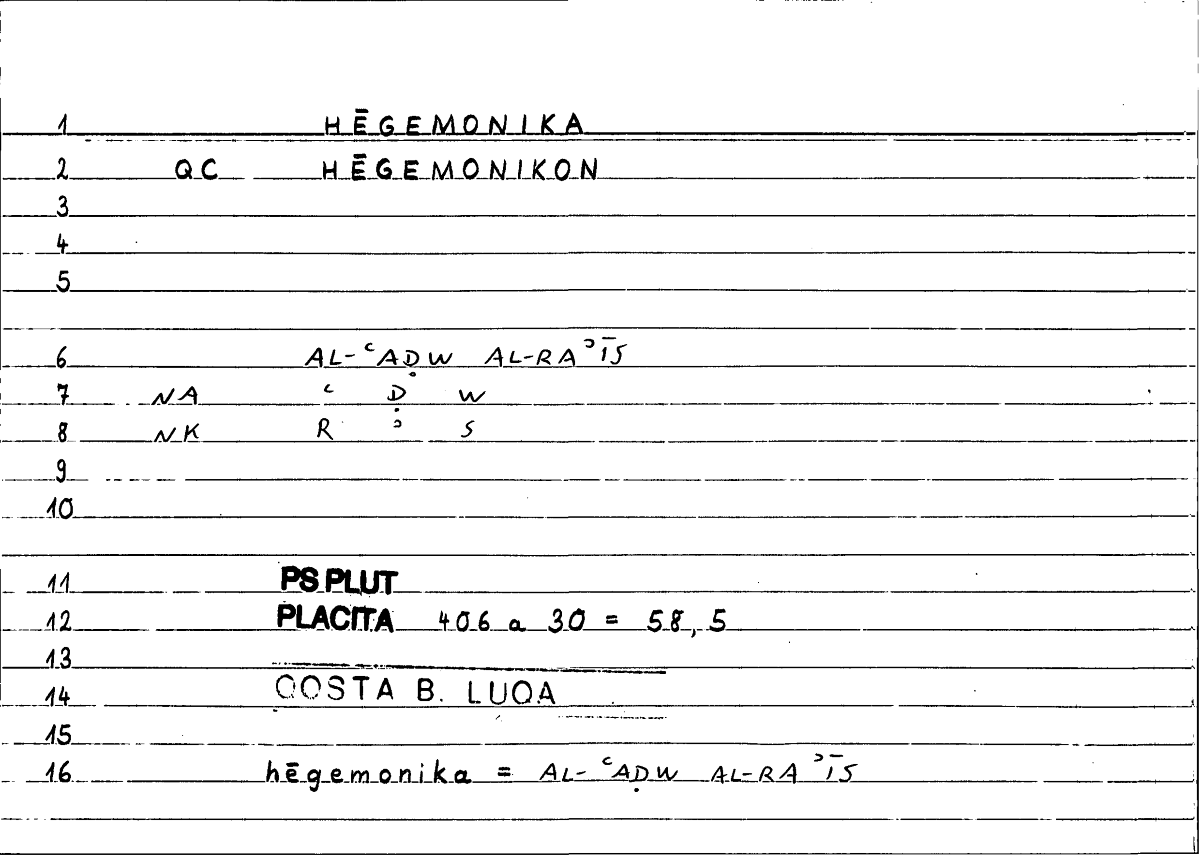 1 HĒGEMONIKA
2 QC HĒGEMONIKON
3
4
5
6 AL-ʿAḌW AL-RAʾĪS
7 NA ʿ Ḍ W
8 NK R ʾ S
9
10
11 PS PLUT
12 PLACITA 406 a 30 = 58,5
13
14 QOSTA B. LUQA
15
16 hēgemonika = AL-ʿAḌW AL-RAʾĪS